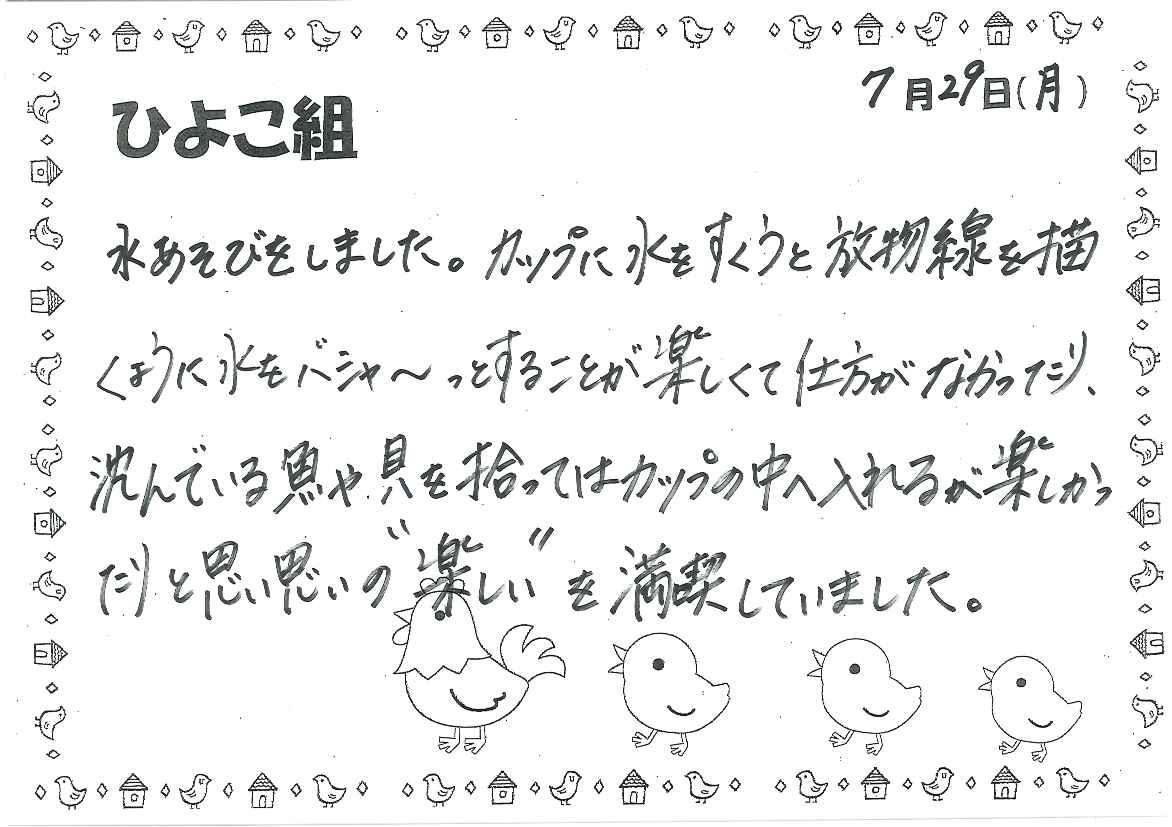 7月29日(月)
ひよこ組
水あそびをしました。カップに水をすくうと放物線を描
くように水をバシャ～っとすることが楽しくて仕方がなかったり、
沈んでいる魚や貝を拾ってはカップの中へ入れるが楽しかっ
たりと思い思いの"楽しい"を満喫していました。